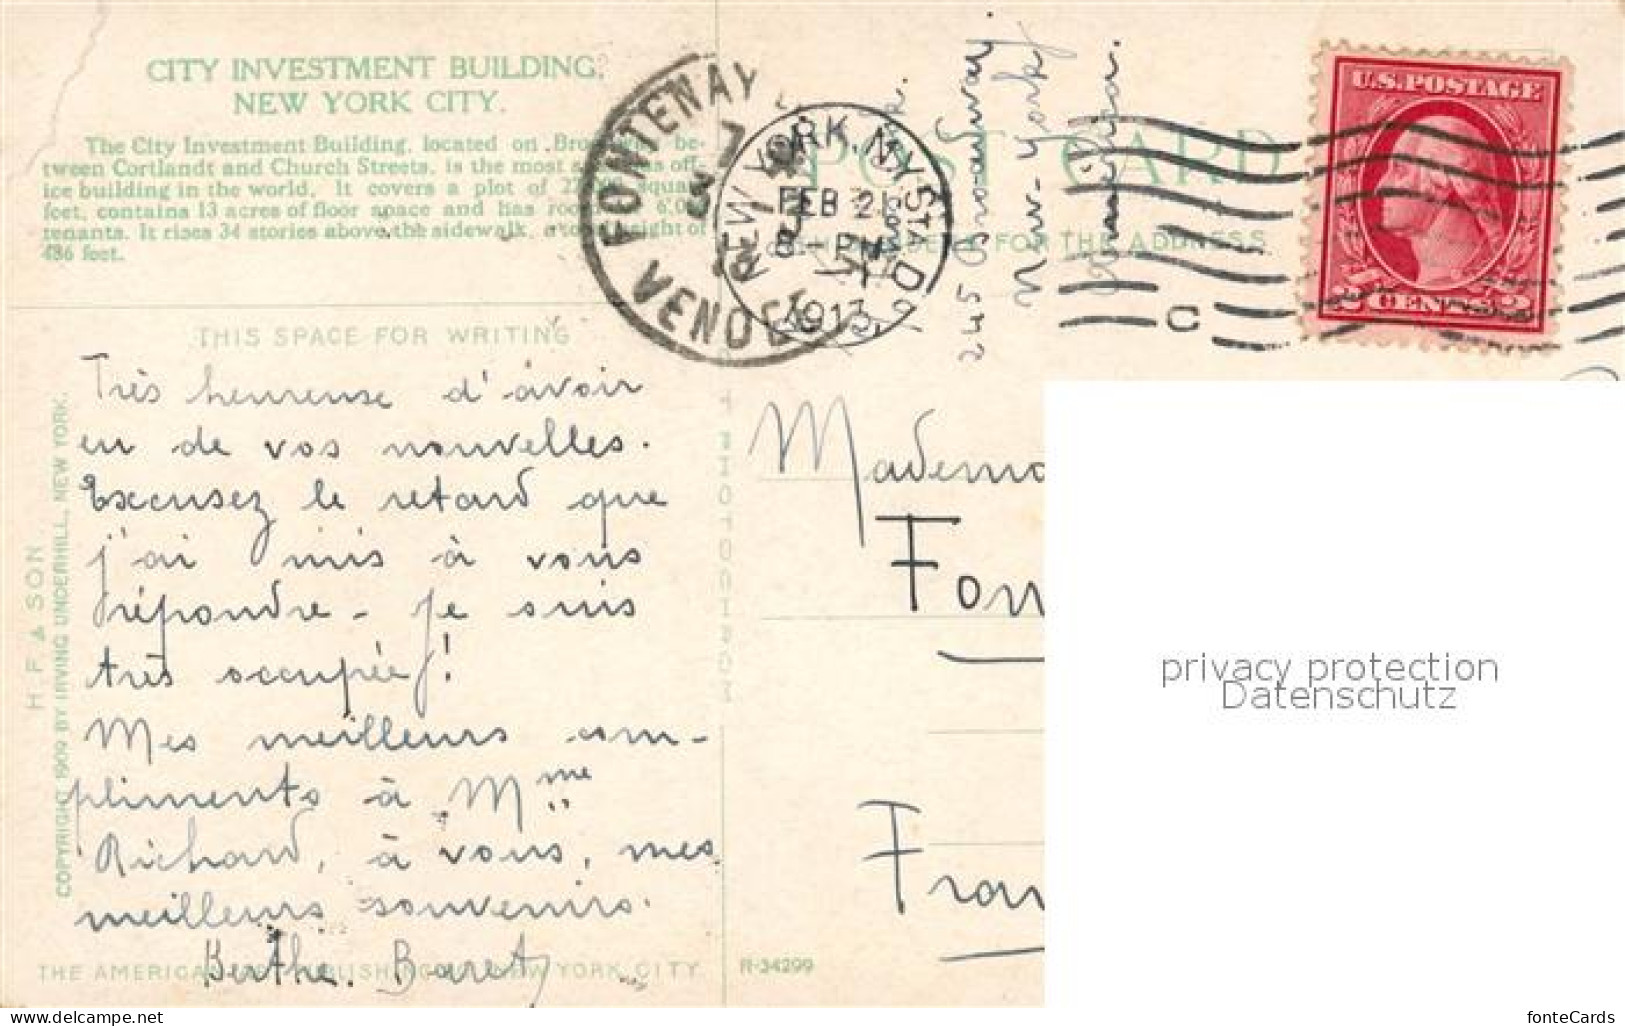 CITY INVESTMENT BUILDING,
NEW YORK CITY.
The City Investment Building, located on be-
tween Cortlandt and Church Streets, is the most off-
ice building in the world. It covers a plot of square
feet, contains 13 acres of floor space and has
tenants. It rises 34 stories above the sidewalk, a height of
486 feet.
FONTENAY
VENDEE
NEW YORK, N.Y. STA. D
FEB 2
8-PM
1913
POST CARD
FOR THE ADDRESS
2 245 Broadway.
New-York
C
U.S. POSTAGE
2 CENTS 2
THIS SPACE FOR WRITING
Très heureuse d'avoir
eu de vos nouvelles.
Excusez le retard que
j'ai mis à vous
répondre - je suis
très occupée!
Mes meilleurs com-
pliments à Mme
Richard, à vous, mes
meilleurs souvenirs.
Berthe Baret
H. F & SON
COPYRIGHT 1909 BY IRVING UNDERHILL, NEW YORK.
PHOTOCHROM
THE AMERICAN PUBLISHING NEW YORK CITY
R-34299
Mademo
Fon
Fran
privacy protection
Datenschutz
www.delcampe.net
fonteCards